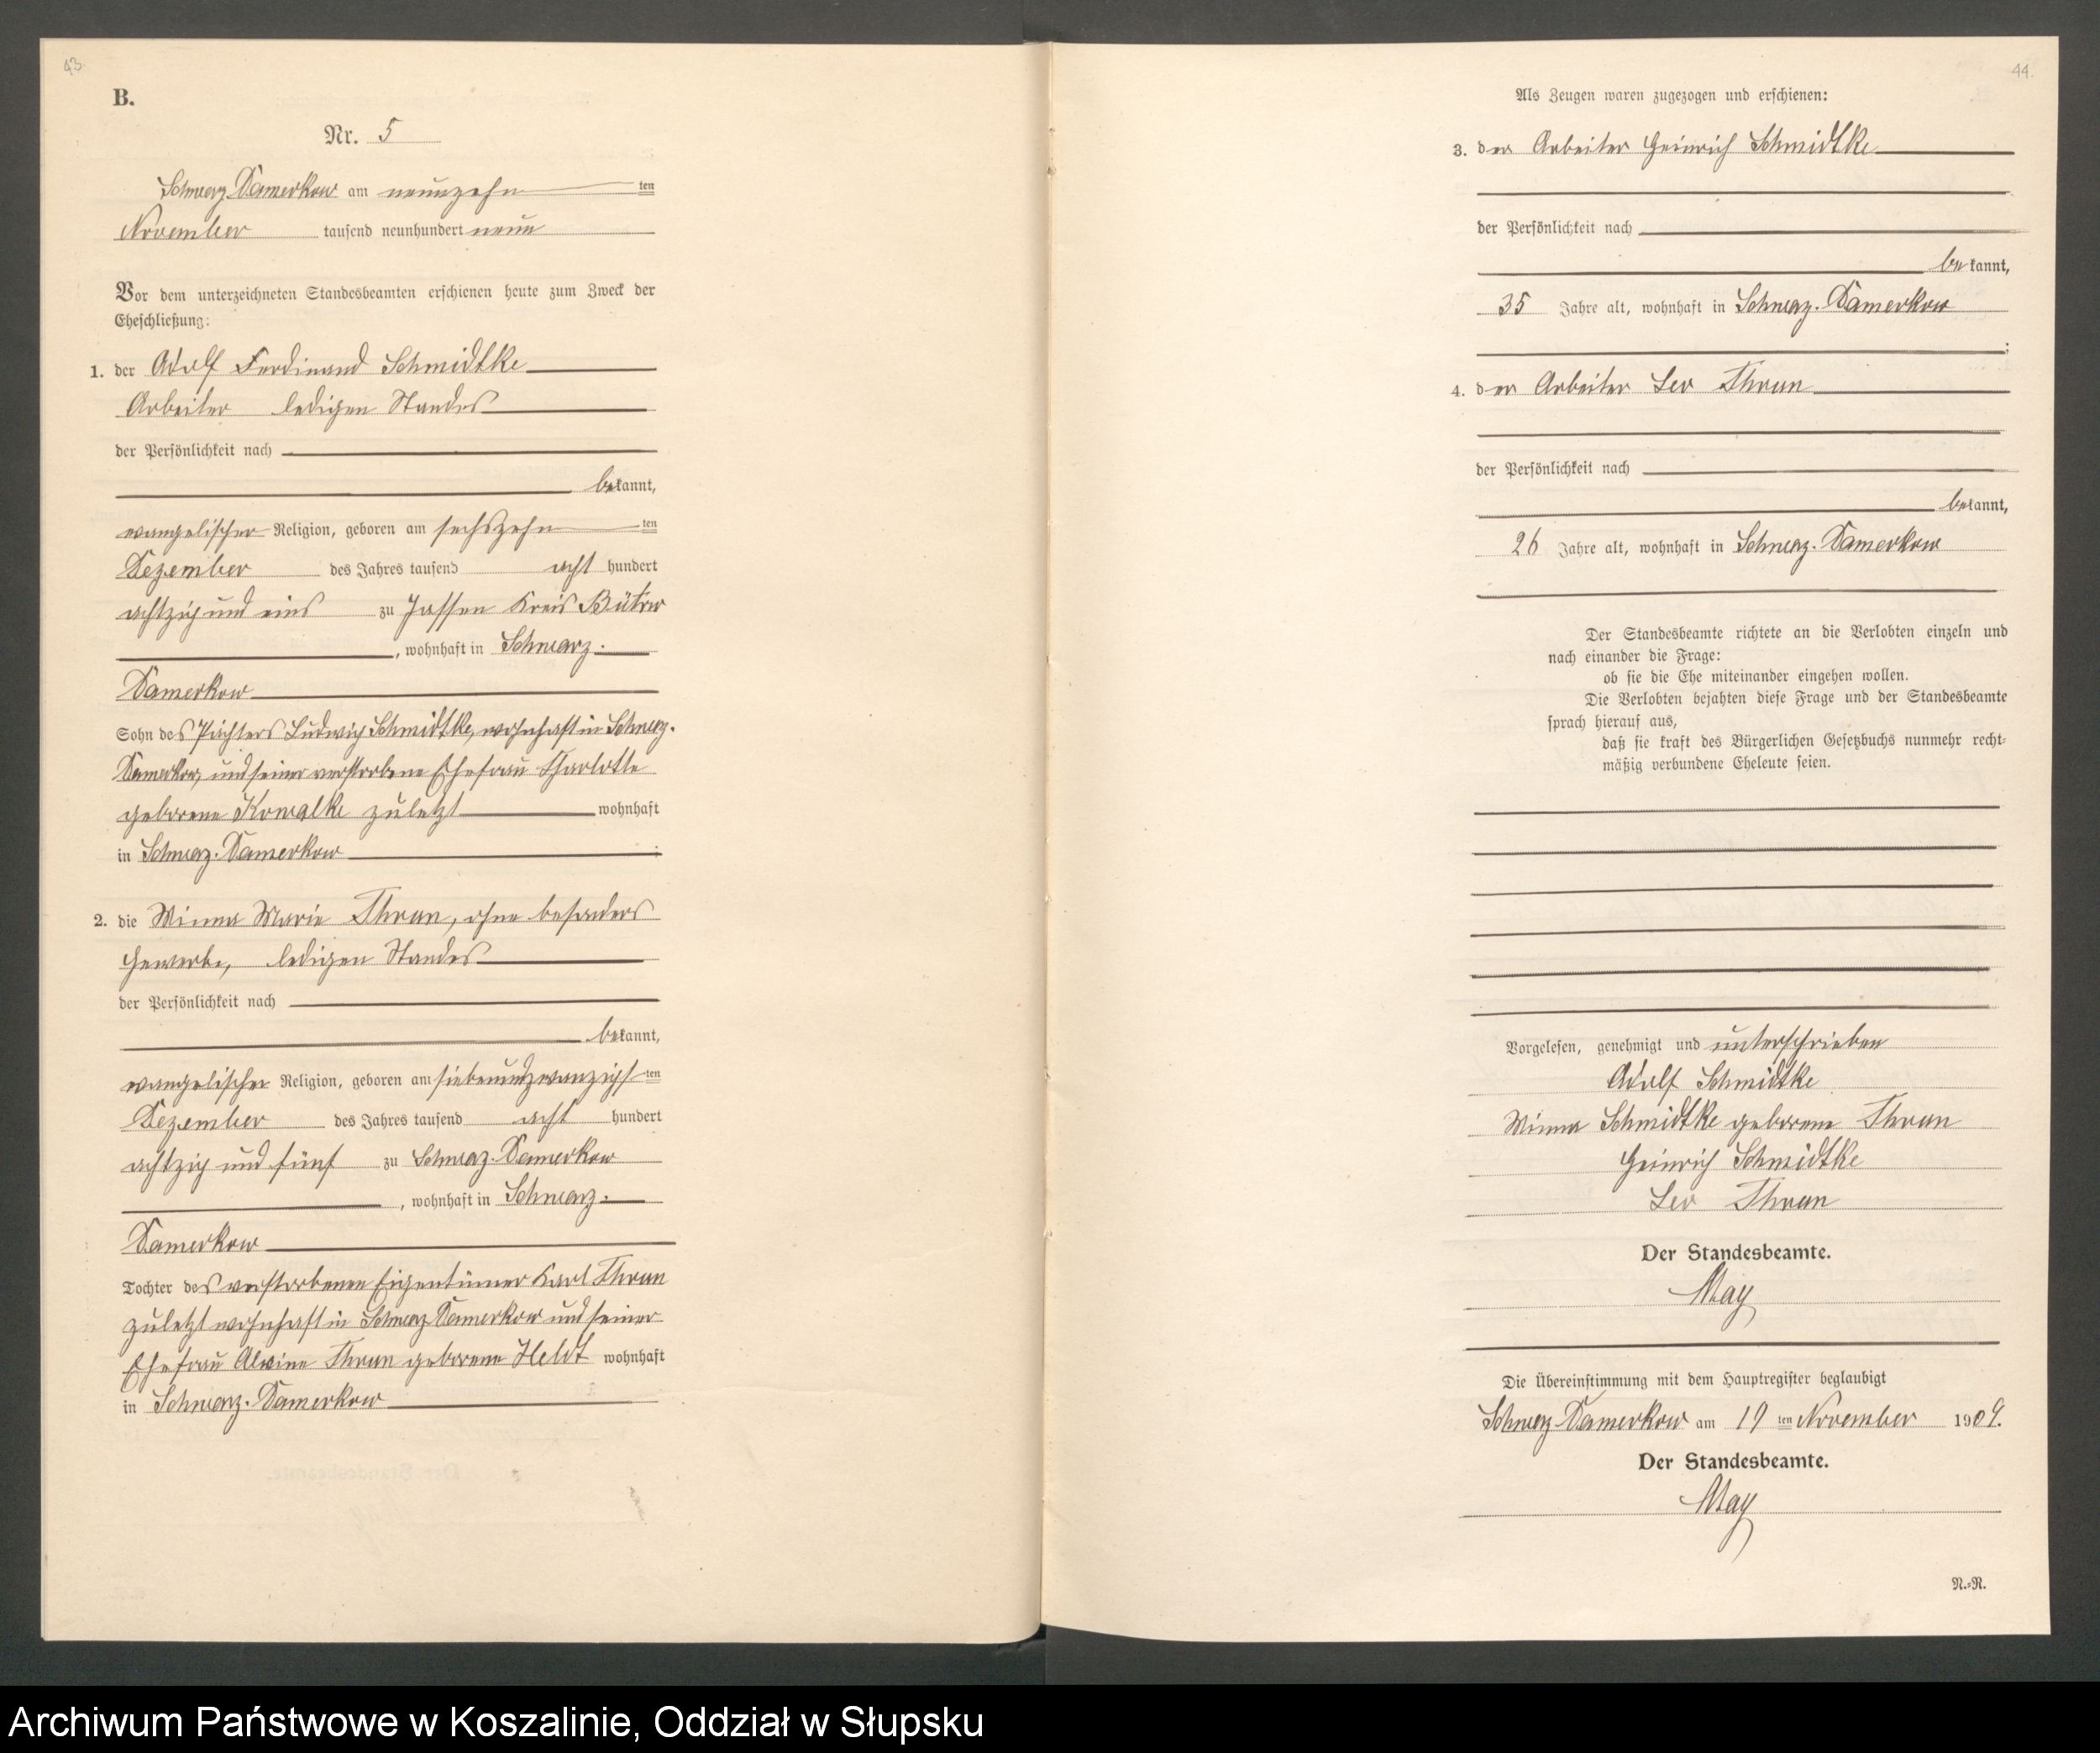 43.
B.
Nr. 5
Schwarz Damerkow am neunzehn ten
November tausend neunhundert neun
Vor dem unterzeichneten Standesbeamten erschienen heute zum Zweck der
Eheschließung:
1. der Adolf Ferdinand Schmidtke
Arbeiter ledigen Standes
der Persönlichkeit nach
bekannt,
evangelischer Religion, geboren am sechszehn ten
Dezember des Jahres tausend acht hundert
achtzig und eins zu Jassen Kreis Bütow
, wohnhaft in Schwarz-
Damerkow
Sohn des Pächters Ludwig Schmidtke, wohnhaft in Schwarz-
Damerkow, und seiner verstorbene Ehefrau Charlotte
geborene Kowalke zuletzt wohnhaft
in Schwarz-Damerkow ;
2. die Minna Marie Thrun, ohne besonders
Gewerbe, ledigen Standes
der Persönlichkeit nach
bekannt,
evangelischer Religion, geboren am siebenundzwanzigsten
Dezember des Jahres tausend acht hundert
achtzig und fünf zu Schwarz-Damerkow
, wohnhaft in Schwarz-
Damerkow
Tochter des verstorbenen Eigentümer Karl Thrun
zuletzt wohnhaft in Schwarz Damerkow und seiner
Ehefrau Alwine Thrun geborene Heldt wohnhaft
in Schwarz-Damerkow
44.
Als Zeugen waren zugezogen und erschienen:
3. der Arbeiter Heinrich Schmidtke
der Persönlichkeit nach
bekannt,
35 Jahre alt, wohnhaft in Schwarz-Damerkow
;
4. der Arbeiter Leo Thrun
der Persönlichkeit nach
bekannt,
26 Jahre alt, wohnhaft in Schwarz-Damerkow
Der Standesbeamte richtete an die Verlobten einzeln und
nach einander die Frage:
ob sie die Ehe miteinander eingehen wollen.
Die Verlobten bejahten diese Frage und der Standesbeamte
sprach hierauf aus,
daß sie kraft des Bürgerlichen Gesetzbuchs nunmehr recht-
mäßig verbundene Eheleute seien.
Vorgelesen, genehmigt und unterschrieben
Adolf Schmidtke
Minna Schmidtke geborene Thrun
Heinrich Schmidtke
Leo Thrun
Der Standesbeamte.
May
Die Übereinstimmung mit dem Hauptregister beglaubigt
Schwarz Damerkow am 19 ten November 1909.
Der Standesbeamte.
May
N.-R.
Archiwum Państwowe w Koszalinie, Oddział w Słupsku